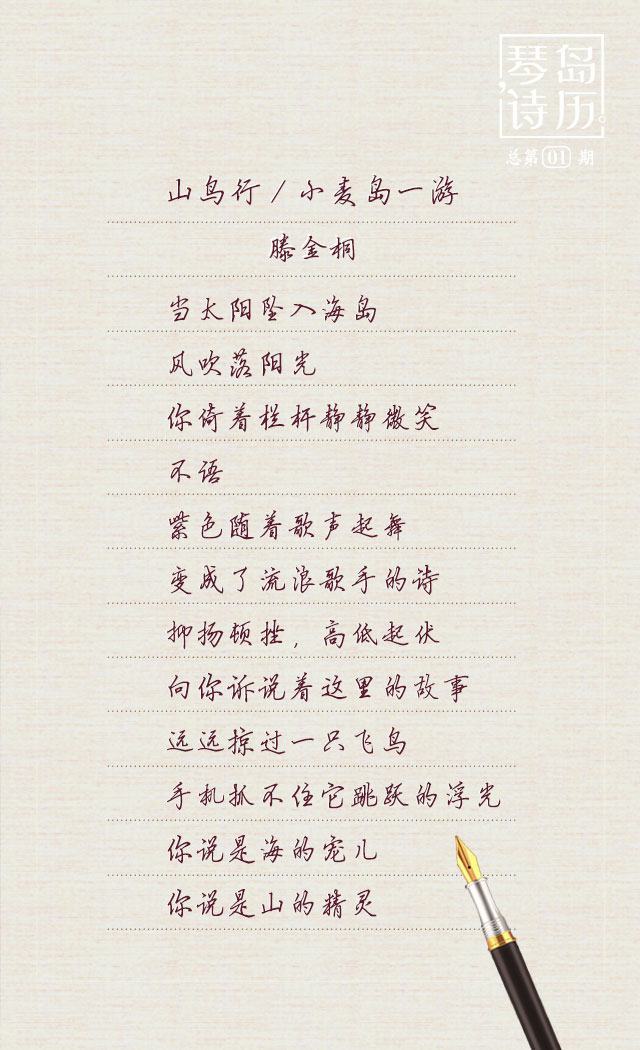 琴岛
诗历
总第01期
山鸟行/小麦岛一游
滕金桐
当太阳坠入海岛
风吹落阳光
你倚着栏杆静静微笑
不语
紫色随着歌声起舞
变成了流浪歌手的诗
抑扬顿挫，高低起伏
向你诉说着这里的故事
远远掠过一只飞鸟
手机抓不住它跳跃的浮光
你说是海的宠儿
你说是山的精灵